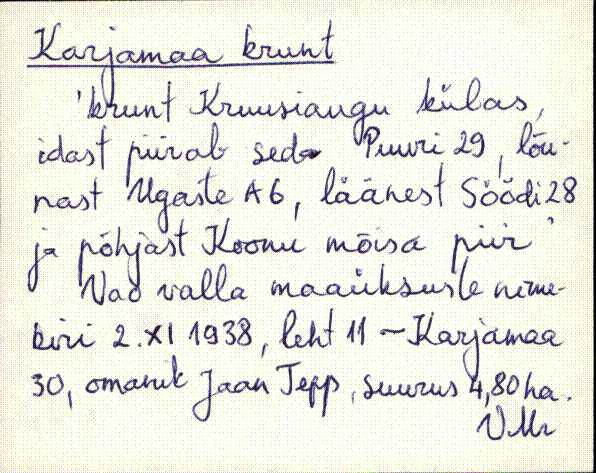 Karjamaa krunt
'krunt Kruusiaugu külas,
idast piirab seda Puuri 29, lõu-
nast Ugaste A6, läänest Söödi 28
ja põhjast Koonu mõisa piir'
Vao valla maaüksuste nime-
kiri 2.XI 1938, leht 11 – Karjamaa
30, omanik Jaan Tepp, suurus 4,80 ha.
VMr